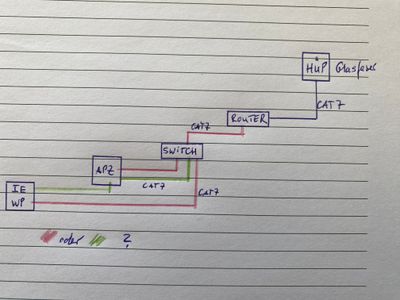 HüP Glasfaser
CAT7
ROUTER
CAT7
SWITCH
APZ
CAT7
CAT7
IE
WP
oder ?